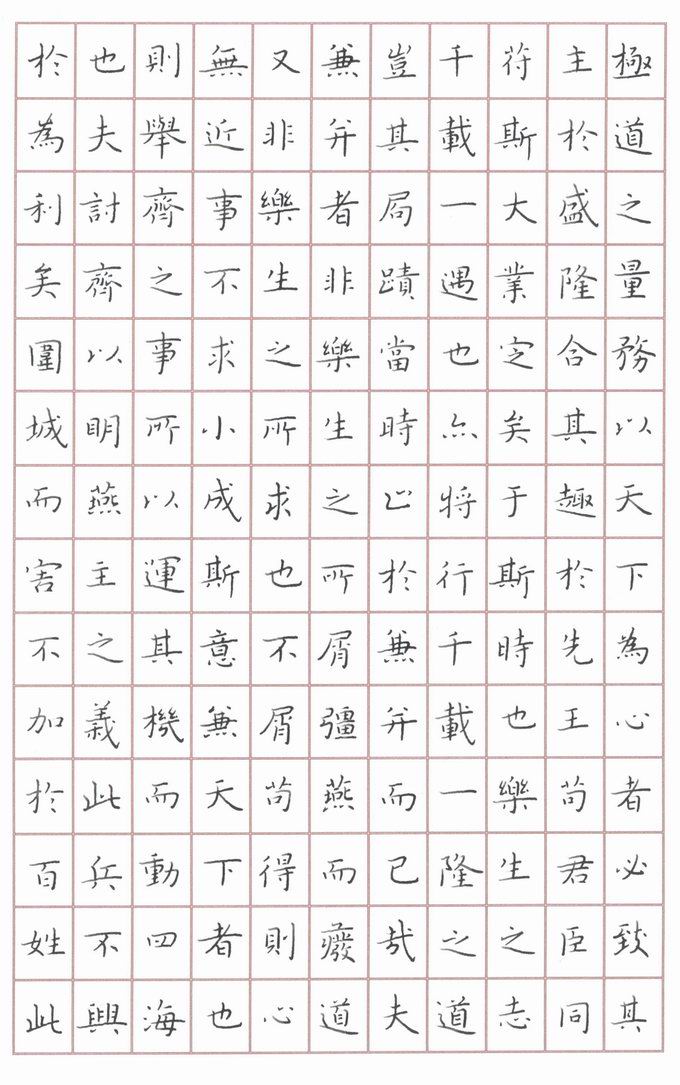 極道之量務以天下為心者必致其
主於盛隆合其趣於先王苟君臣同
符斯大業定矣于斯時也樂生之志
千載一遇也亦將行千載一隆之道
豈其局蹟當時止於兼并而已哉夫
兼并者非樂生之所屑彊燕而廢道
又非樂生之所求也不屑苟得則心
無近事不求小成斯意兼天下者也
則舉齊之事所以運其機而動四海
也夫討齊以明燕主之義此兵不興
於為利矣圍城而害不加於百姓此